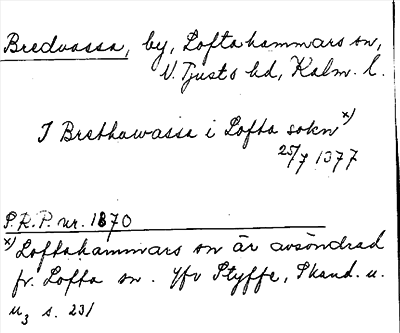 Bredvassa, by, Loftahammars sn,
N. Tjusts hd, Kalm. l.
I Brethawassa i Lofta sokn x)
25/7 1377
S.R.P. nr. 1870
x) Loftahammars sn är avsöndrad
fr. Lofta sn. Jfr Styffe, Skand. u.
u3 s. 231